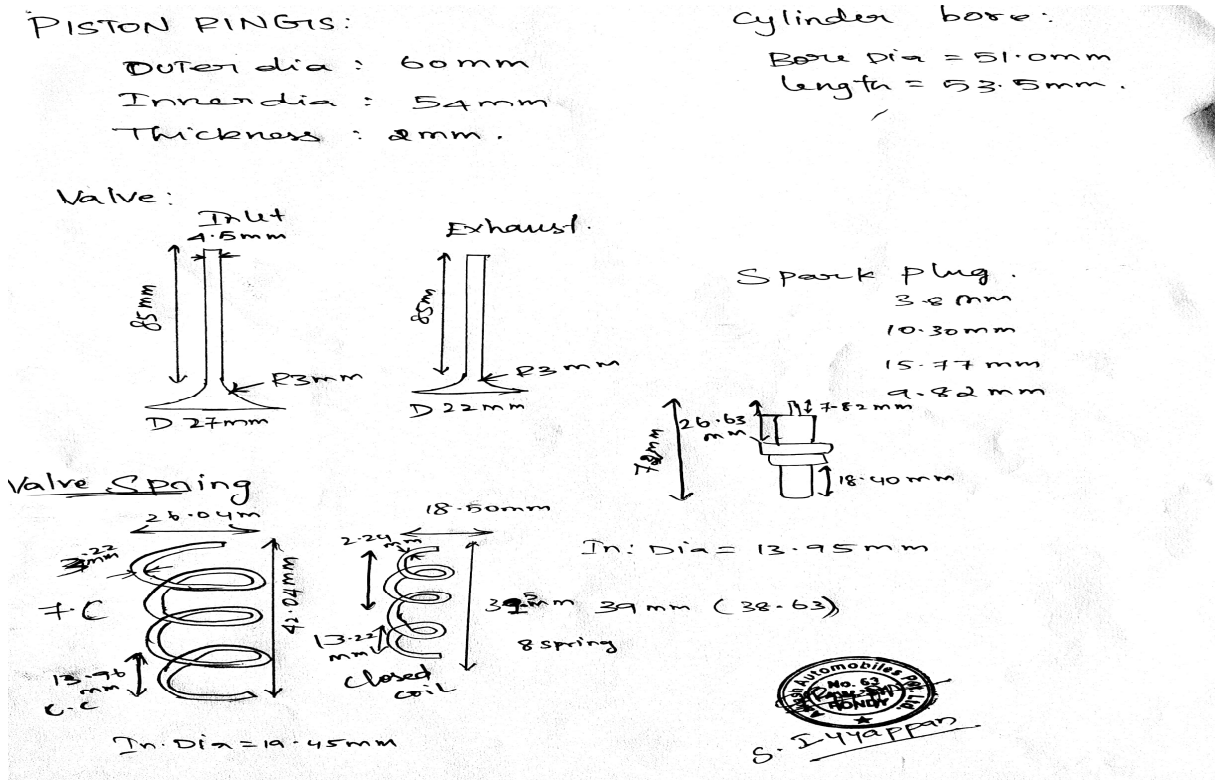 PISTON RINGS:
Outer dia : 60mm
Inner dia : 54mm
Thickness : 2mm.
Cylinder bore:
Bore Dia = 51.0mm
length = 53.5mm.
Valve:
Inlet
4.5mm
85mm
R3mm
D 27mm
Exhaust.
85mm
R3mm
D 22mm
Spark plug.
3.8 mm
10.30mm
15.77 mm
9.82 mm
7.82mm
26.63
mm
78mm
18.40mm
Valve Spring
26.04m
3.22
mm
7.C
42.04mm
13.96
mm
C.C
In. Dia = 19.45mm
18.50mm
2.24
mm
13.22
mm
closed
coil
In: Dia = 13.95mm
39 mm (38.63)
8 spring
Automobiles Pvt. Ltd.
No. 63
S. Iyyappan